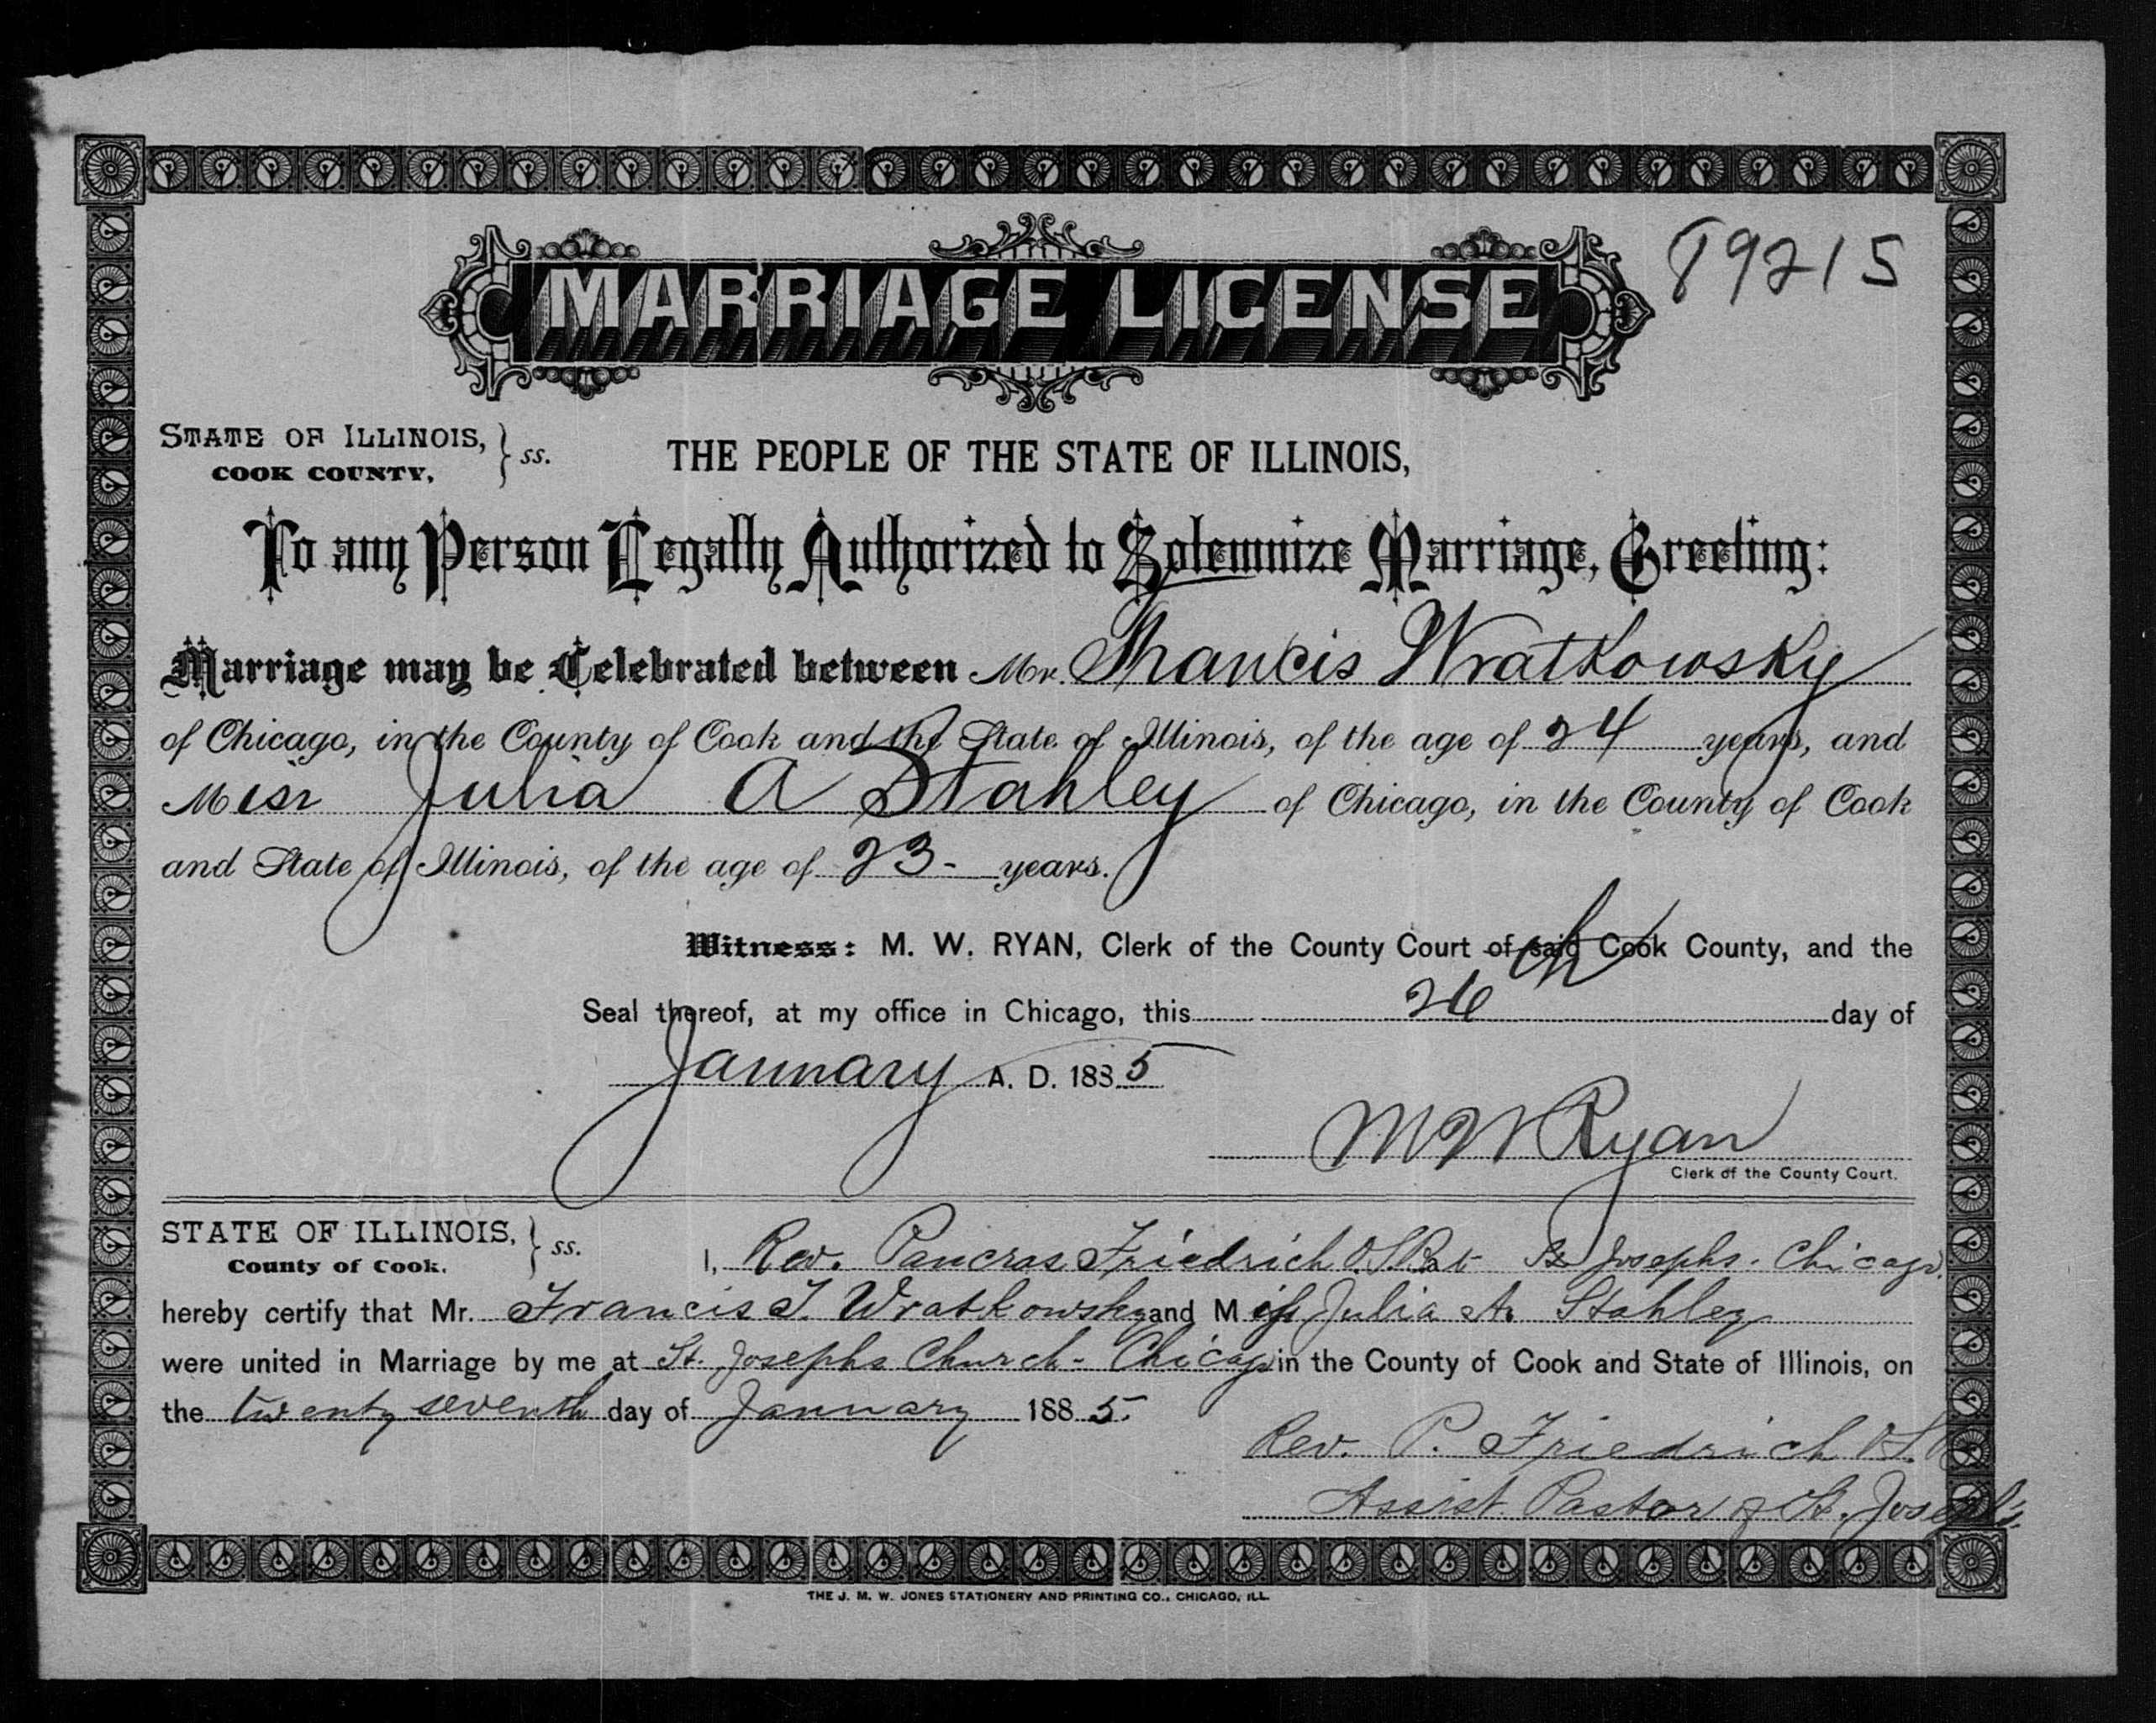 89215
MARRIAGE LICENSE
STATE OF ILLINOIS, } ss.
COOK COUNTY,
THE PEOPLE OF THE STATE OF ILLINOIS,
To any Person Legally Authorized to Solemnize Marriage, Greeting:
Marriage may be Celebrated between Mr. Francis Wratkowsky
of Chicago, in the County of Cook and the State of Illinois, of the age of 24 years, and
Miss Julia A Stahley of Chicago, in the County of Cook
and State of Illinois, of the age of 23 - years.
Witness: M. W. RYAN, Clerk of the County Court of said Cook County, and the
Seal thereof, at my office in Chicago, this 26th day of
January A. D. 1885
M W Ryan
Clerk of the County Court.
STATE OF ILLINOIS, } ss.
County of Cook.
I, Rev. Pancras Friedrich O.S.B. at St Josephs. Chicago.
hereby certify that Mr. Francis T. Wratkowsky and Miss Julia A. Stahley
were united in Marriage by me at St. Josephs Church - Chicago in the County of Cook and State of Illinois, on
the twenty seventh day of January 1885.
Rev. P. Friedrich O.S.B.
Assist. Pastor of St. Joseph's
THE J. M. W. JONES STATIONERY AND PRINTING CO., CHICAGO, ILL.